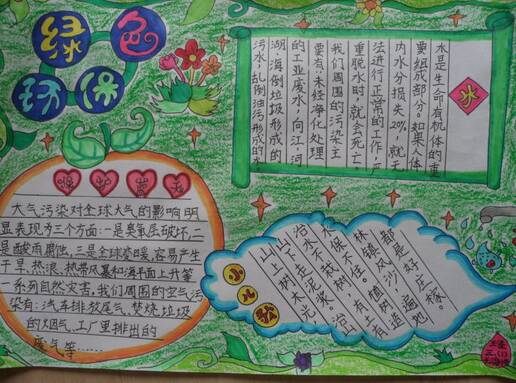 绿色
环保
水
水是生命有机体的重
要组成部分。如果人体
内水分损失20%,就无
法进行正常的工作,严
重脱水时就会死亡。
我们周围的污染主
要有:未经净化处理
的工业废水,向江、河
湖、海倒垃圾形成的
污水;乱倒油污形成的水
大气污染对全球大气的影响明
显表现为三个方面:一是臭氧层破坏,二
是酸雨腐蚀,三是全球变暖,容易产生
干旱、热浪、热带风暴和海平面上升等
一系列自然灾害,我们周围的空气污
染有:汽车排放尾气、焚烧垃圾
的烟气、工厂里排出的
废气等……
小儿歌
山上树木光,
山下走泥浆。治山
治水不栽树,有土有
水保不住;植树造
林镇风沙,遍地
都是好庄稼。